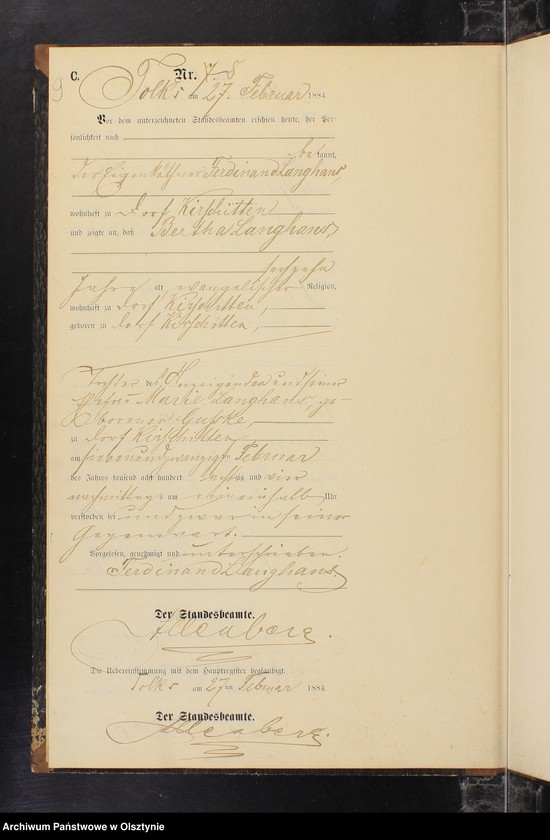 9
C.
Nr. 8
Tolks am 27. Februar 1884
Vor dem unterzeichneten Standesbeamten erschien heute, der Per-
sönlichkeit nach
bekannt,
der Eigenkäthner Ferdinand Langhans,
wohnhaft zu Dorf Kirschitten
und zeigte an, daß Bertha Langhans,
sechzehn
Jahre alt, evangelischer Religion,
wohnhaft zu Dorf Kirschitten,
geboren zu Dorf Kirschitten,
Tochter des Anzeigenden und seiner
Ehefrau Marie Langhans, ge-
borenen
zu Dorf Kirschitten,
am siebenundzwanzigten Februar
des Jahres tausend acht hundert achtzig und vier
nachmittags um einhalb Uhr
verstorben sei und zwar in seiner
Gegenwart.
Vorgelesen, genehmigt und unterschrieben.
Ferdinand Langhans.
Der Standesbeamte.
Allenberg.
Die Uebereinstimmung mit dem Hauptregister beglaubigt.
Tolks am 27ten Februar 1884.
Der Standesbeamte.
Allenberg.
Archiwum Państwowe w Olsztynie